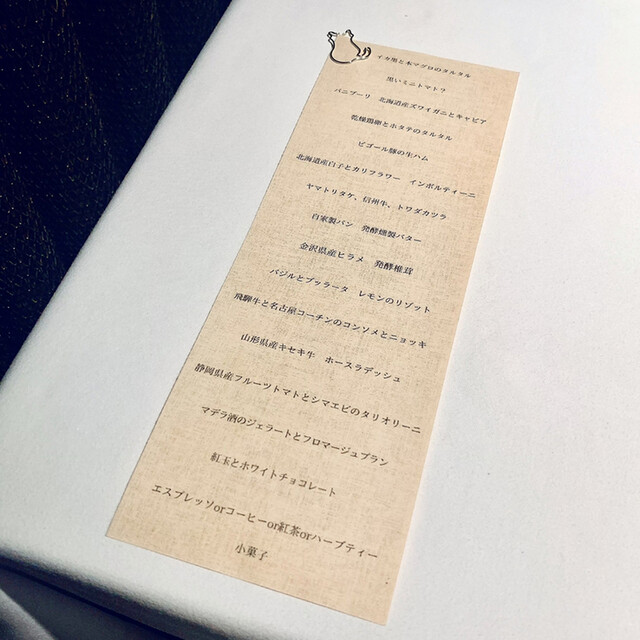 イカ墨と本マグロのタルタル
黒いミニトマト?
パニプーリ　北海道産ズワイガニとキャビア
乾燥鶏卵とホタテのタルタル
ビゴール豚の生ハム
北海道産白子とカリフラワー　インボルティーニ
ヤマトリタケ、信州牛、トワダカツラ
自家製パン　発酵燻製バター
金沢県産ヒラメ　発酵椎茸
バジルとブッラータ　レモンのリゾット
飛騨牛と名古屋コーチンのコンソメとニョッキ
山形県産キセキ牛　ホースラデッシュ
静岡県産フルーツトマトとシマエビのタリオリーニ
マデラ酒のジェラートとフロマージュブラン
紅玉とホワイトチョコレート
エスプレッソorコーヒーor紅茶orハーブティー
小菓子